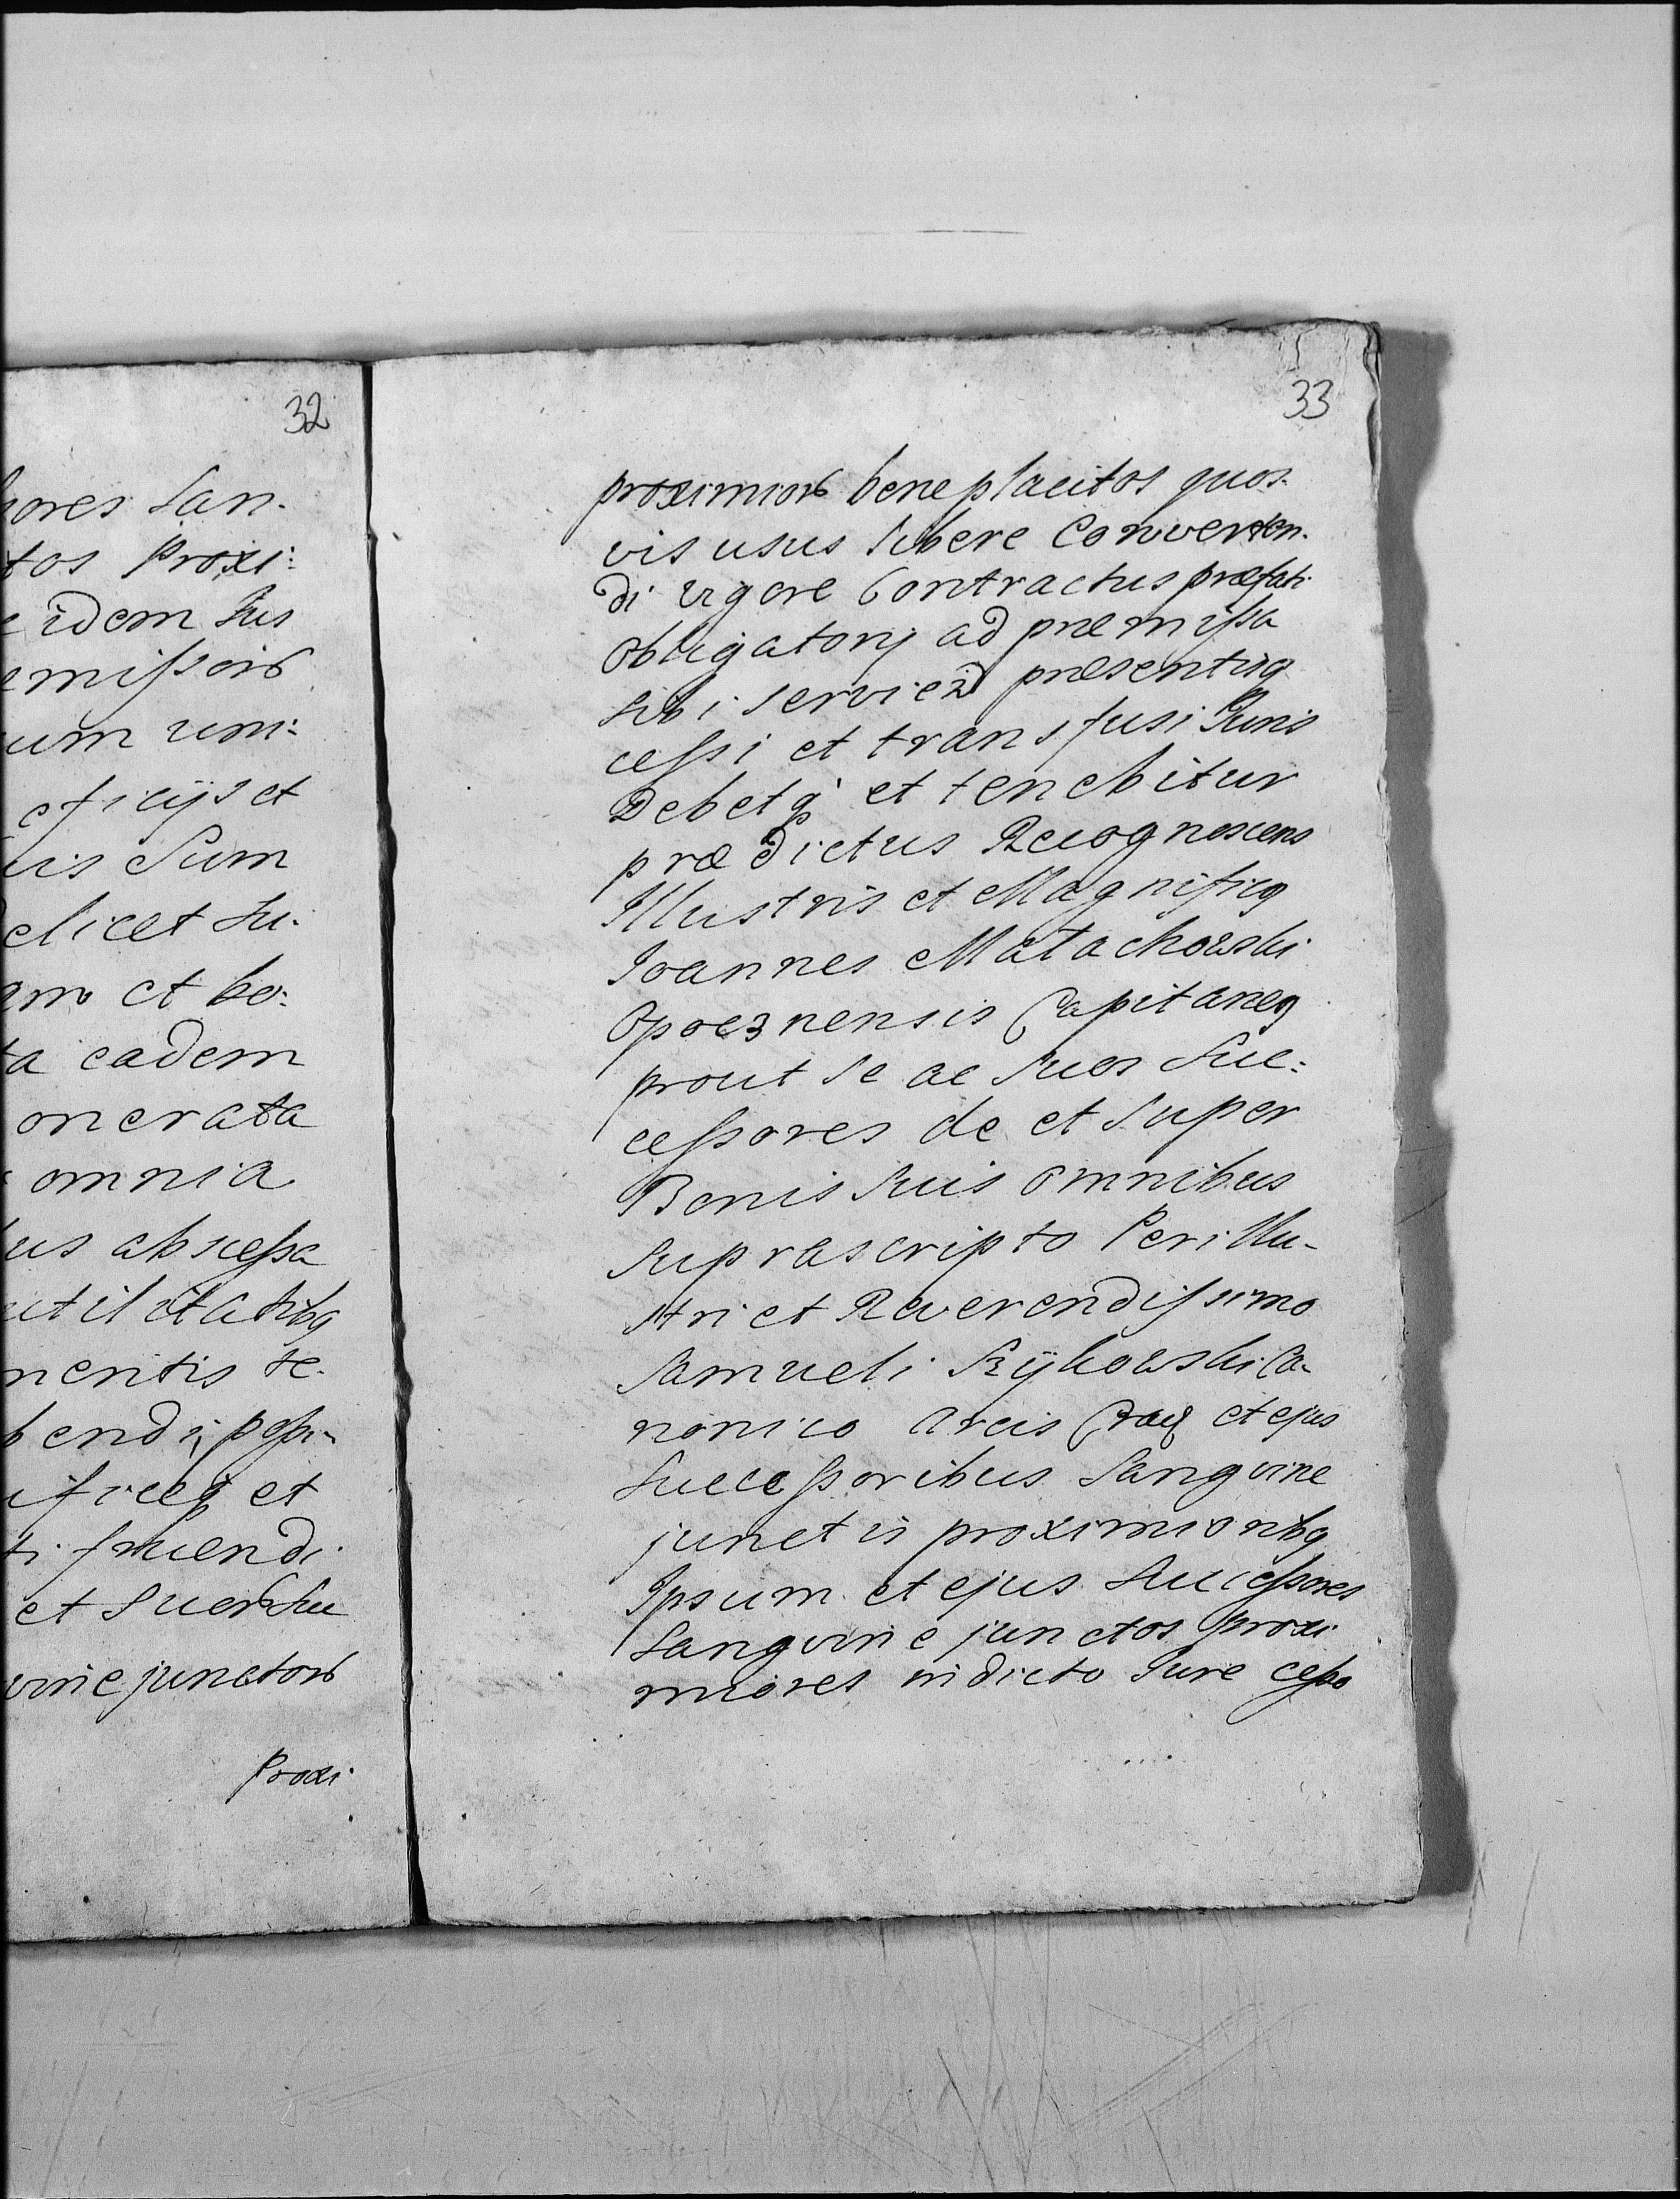 32
hores San-
tos Proxi:
e idem Jus
emissor
um uni:
eficijs et
uis Sum
elicet Su-
am et bo:
ta eadem
onerata
omnia
us abscessa
utilitatibq
mentis te-
bendi, possi-
ificeq et
ti fruendi
et Suor Suc
vine junctor
Proxi-
33
proximior beneplacitos quos-
vis usus libere Converten-
di vigore Contractus præfati
Obligatorij ad præmissa
sibi serviend præsentisq
cessi et transfusi Juris
Debetq et tenebitur
prædictus Recognoscens
Illustris et Magnificq
Joannes Małachowski
Opocznensis Capitaneq
prout Se ac Suos Suc:
cessores de et super
Bonis Suis omnibus
suprascripto Perillu-
stri et Reverendissimo
Samueli Szÿkowski Ca-
nonico Arcis Crac et ejus
Successoribus Sangvine
junctis proximioribq
Ipsum et ejus Successores
Sangvine junctos proxi
miores in dicto Jure cesso